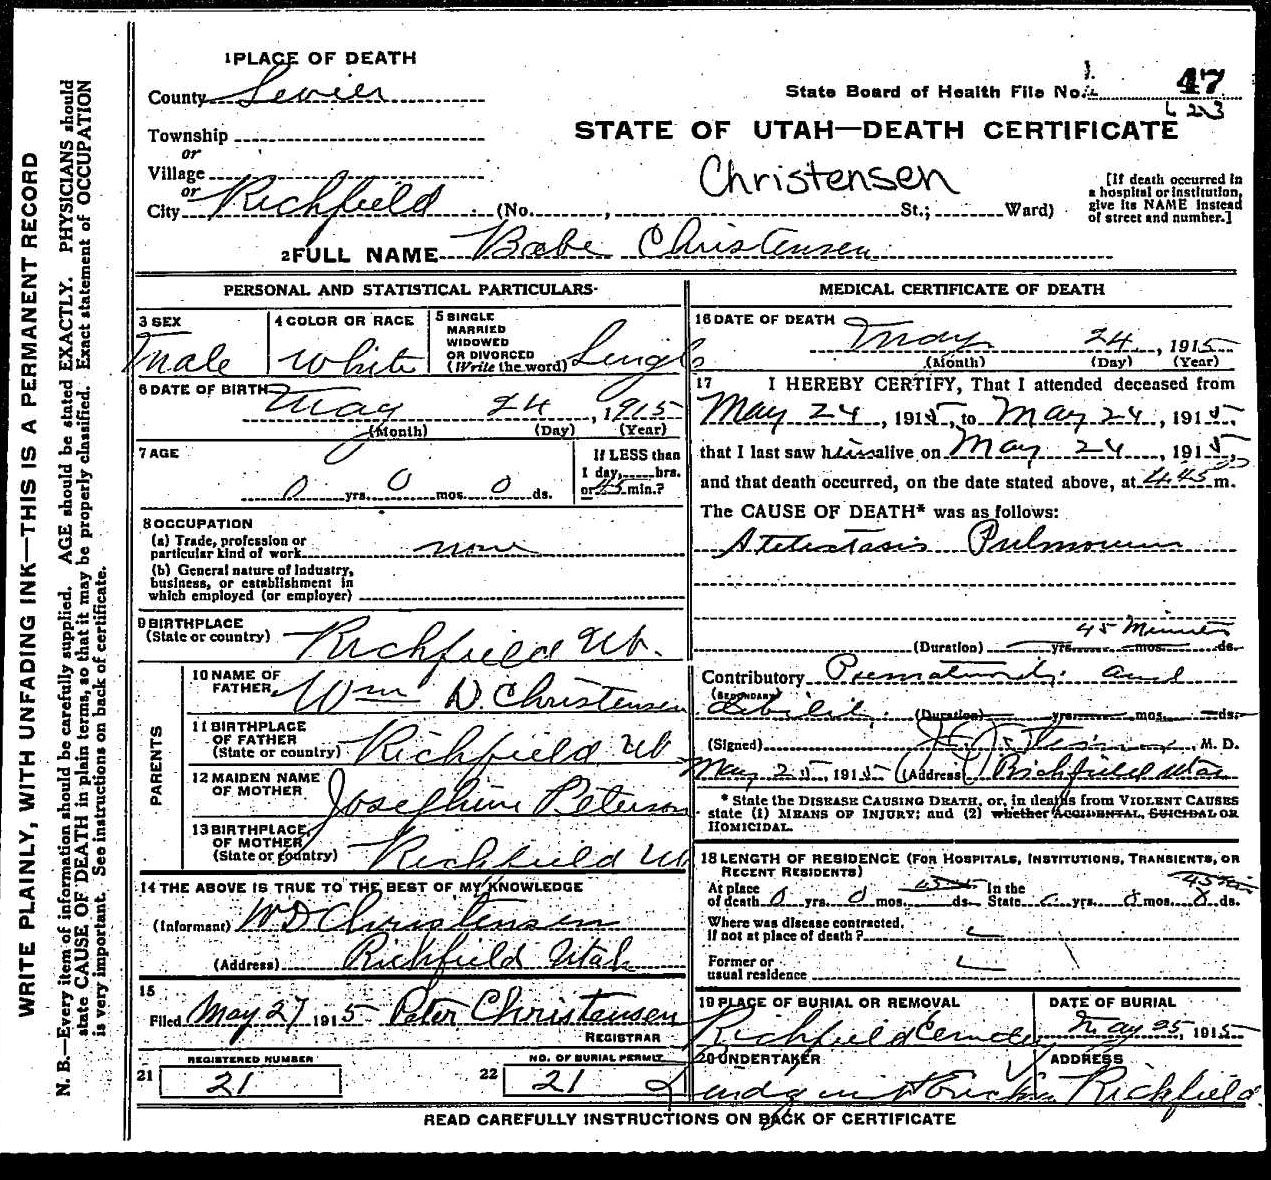 WRITE PLAINLY, WITH UNFADING INK—THIS IS A PERMANENT RECORD
N. B.—Every item of information should be carefully supplied. AGE should be stated EXACTLY. PHYSICIANS should
state CAUSE OF DEATH in plain terms, so that it may be properly classified. Exact statement of OCCUPATION
is very important. See instructions on back of certificate.
1 PLACE OF DEATH
County Sevier
State Board of Health File No. 47
223
Township
or
Village
or
City Richfield (No. , St.; Ward)
STATE OF UTAH—DEATH CERTIFICATE
Christensen
[If death occurred in
a hospital or institution,
give its NAME instead
of street and number.]
2 FULL NAME Babe Christensen
PERSONAL AND STATISTICAL PARTICULARS
3 SEX
Male
4 COLOR OR RACE
White
5 SINGLE
MARRIED
WIDOWED
OR DIVORCED
(Write the word) Single
6 DATE OF BIRTH
May 24, 1915
(Month) (Day) (Year)
7 AGE
0 yrs. 0 mos. 0 ds.
If LESS than
1 day, hrs.
or 45 min.?
8 OCCUPATION
(a) Trade, profession or
particular kind of work none
(b) General nature of Industry,
business, or establishment in
which employed (or employer)
9 BIRTHPLACE
(State or country) Richfield Ut.
PARENTS
10 NAME OF
FATHER Wm D. Christensen
11 BIRTHPLACE
OF FATHER
(State or country) Richfield Ut
12 MAIDEN NAME
OF MOTHER Josephine Peterson
13 BIRTHPLACE
OF MOTHER
(State or country) Richfield Ut
14 THE ABOVE IS TRUE TO THE BEST OF MY KNOWLEDGE
(Informant) W D Christensen
(Address) Richfield Utah
15
Filed May 27 1915 Peter Christensen
REGISTRAR
REGISTERED NUMBER
21 21
NO. OF BURIAL PERMIT
22 21
MEDICAL CERTIFICATE OF DEATH
16 DATE OF DEATH
May 24, 1915
(Month) (Day) (Year)
17 I HEREBY CERTIFY, That I attended deceased from
May 24, 1915, to May 24, 1915,
that I last saw him alive on May 24, 1915,
and that death occurred, on the date stated above, at 4.45 m.
The CAUSE OF DEATH* was as follows:
Atelectasis Pulmonum
45 Minutes
(Duration) yrs. mos. ds.
Contributory Prematurity and
(SECONDARY)
debility. (Duration) yrs. mos. ds.
(Signed) M. D.
May 25, 1915 (Address) Richfield Utah
* State the DISEASE CAUSING DEATH, or, in deaths from VIOLENT CAUSES
state (1) MEANS OF INJURY; and (2) whether ACCIDENTAL, SUICIDAL OR
HOMICIDAL.
18 LENGTH OF RESIDENCE (FOR HOSPITALS, INSTITUTIONS, TRANSIENTS, OR
RECENT RESIDENTS)
At place
of death 0 yrs. 0 mos. ds.
45 min
In the
State 0 yrs. 0 mos. 0 ds.
Where was disease contracted,
if not at place of death?
Former or
usual residence
19 PLACE OF BURIAL OR REMOVAL
Richfield
DATE OF BURIAL
May 25, 1915
20 UNDERTAKER
ADDRESS
Richfield
READ CAREFULLY INSTRUCTIONS ON BACK OF CERTIFICATE